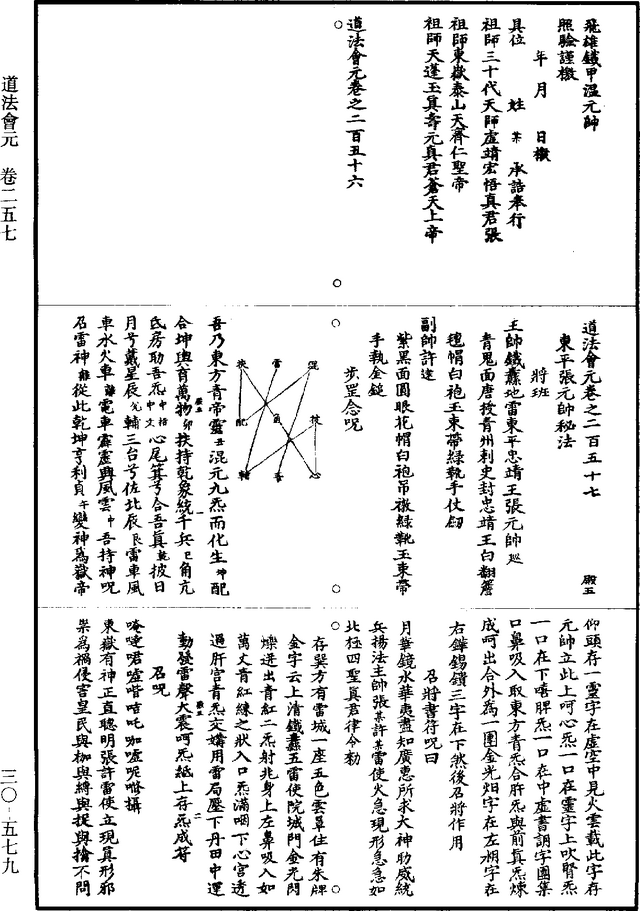 道法會元 卷二五七
三〇·五七九
飛雄鐵甲溫元帥
照驗謹檄
年 月 日檄
具位 姓 某 承誥奉行
祖師三十代天師虛靖宏悟真君張
祖師東嶽泰山天齊仁聖帝
祖師天蓬玉真壽元真君蒼天上帝
道法會元卷之二百五十六
道法會元卷之二百五十七
東平張元帥秘法
將班
主帥鐵纛地雷東平忠靖王張元帥巡
青鬼面唐授青州刺史封忠靖王白翻簷
氊帽白袍玉束帶綠靴手仗劒
副帥許遠
紫黑面圓眼花帽白袍吊墩綠靴玉束帶
手執金鎚
步罡念呪
混 雷 扶
技 角 配
心 吾 輔
吾乃東方青帝靈丑混元九炁而化生坤配
合坤與育萬物卯扶持乾象統千兵巳角亢
氐房助吾炁中心尾箕兮合吾真乾披日
月兮戴星辰兌輔三台兮佐北辰艮雷車風
車水火車離電車霹靂興風雲中吾持神呪
召雷神離從此乾坤亨利貞午變神為嶽帝
仰頭存一靈字在虛空中見火雲載此字存
元帥立此上呵心炁一口在靈字上吹腎炁
一口在下嘻脾炁一口在中虛書調字團集
口鼻吸入取東方青炁合肝炁與前真炁煉
成呵出合外為一團金光炟字在左烱字在
右鏵錫鑽三字在下然後召將作用
召將書符呪曰
月華鏡水華夷盡知廣惠所求大神助威統
兵揚法主帥張某許某雷使火急現形急急如
北極四聖真君律令勑
存巽方有雷城一座五色雲罩住有朱牌
金字云上清鐵纛五雷使院城門金光閃
爍迸出青紅二炁射兆身上左鼻吸入如
萬丈青紅練之狀入口炁滿咽下心宮透
過肝宮青炁交媾用雷局壓下丹田中運
動發雷聲大震呵炁紙上存炁成符
召呪
東嶽有神正直聰明張許雷使立現真形邪
祟為禍侵害皇民與枷與縛與捉與擒不問